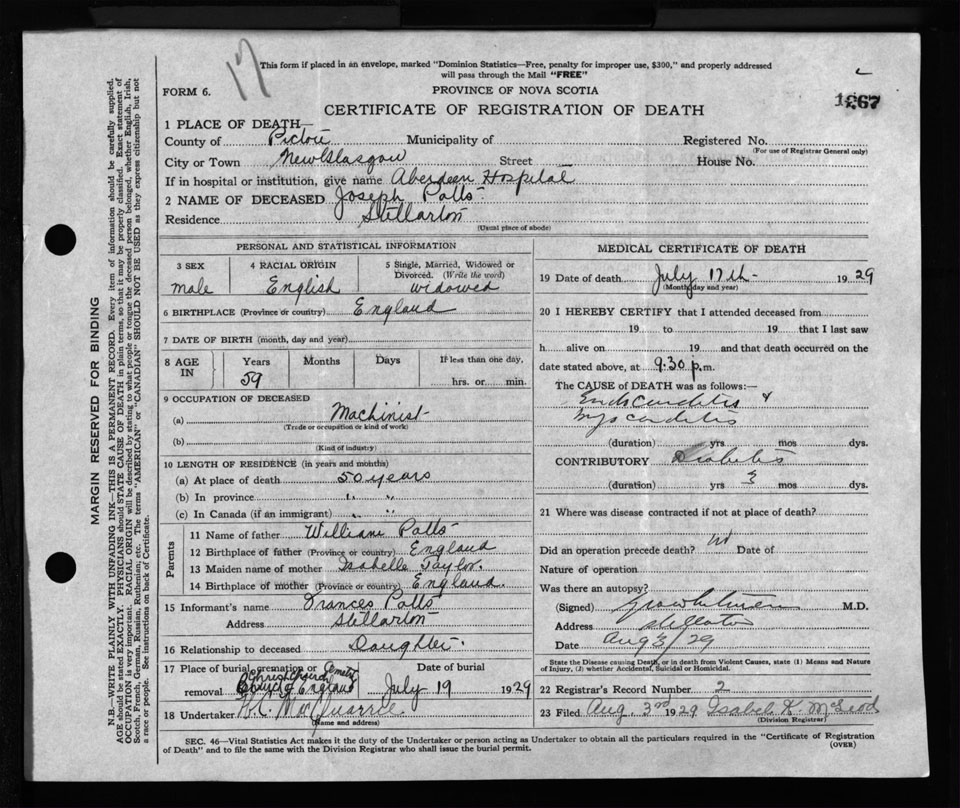 17
This form if placed in an envelope, marked "Dominion Statistics—Free, penalty for improper use, $300," and properly addressed
will pass through the Mail "FREE"
FORM 6.
PROVINCE OF NOVA SCOTIA
1267
CERTIFICATE OF REGISTRATION OF DEATH
1 PLACE OF DEATH—
County of Pictou Municipality of Registered No.
(For use of Registrar General only)
City or Town New Glasgow Street House No.
If in hospital or institution, give name Aberdeen Hospital
2 NAME OF DECEASED Joseph Potts
Residence Stellarton
(Usual place of abode)
PERSONAL AND STATISTICAL INFORMATION
3 SEX 4 RACIAL ORIGIN 5 Single, Married, Widowed or
Divorced. (Write the word)
male English widowed
6 BIRTHPLACE (Province or country) England
7 DATE OF BIRTH (month, day and year)
8 AGE IN Years Months Days If less than one day,
59 hrs. or min.
9 OCCUPATION OF DECEASED
(a) Machinist
(Trade or occupation or kind of work)
(b)
(Kind of industry)
10 LENGTH OF RESIDENCE (in years and months)
(a) At place of death 50 years
(b) In province " "
(c) In Canada (if an immigrant) " "
Parents
11 Name of father William Potts
12 Birthplace of father (Province or country) England
13 Maiden name of mother Isabelle Taylor
14 Birthplace of mother (Province or country) England.
15 Informant's name Frances Potts
Address Stellarton
16 Relationship to deceased Daughter
17 Place of burial, cremation or Date of burial
removal Church of England July 19 1929
18 Undertaker
(Name and address)
MEDICAL CERTIFICATE OF DEATH
19 Date of death July 17th 1929
(Month, day and year)
20 I HEREBY CERTIFY that I attended deceased from
19 to 19 that I last saw
h alive on 19 and that death occurred on the
date stated above, at 9.30 p.m.
The CAUSE of DEATH was as follows:—
Endocarditis &
Myocarditis
(duration) yrs. mos. dys.
CONTRIBUTORY Diabetis
(duration) yrs 3 mos. dys.
21 Where was disease contracted if not at place of death?
Did an operation precede death? No Date of
Nature of operation
Was there an autopsy?
(Signed) M.D.
Address Stellarton
Date Aug 3/29
State the Disease causing Death, or in death from Violent Causes, state (1) Means and Nature
of Injury, (2) whether Accidental, Suicidal or Homicidal.
22 Registrar's Record Number 2
23 Filed Aug. 3rd 1929 Isabel K. McLeod
(Division Registrar)
SEC. 46—Vital Statistics Act makes it the duty of the Undertaker or person acting as Undertaker to obtain all the particulars required in the "Certificate of Registration
of Death" and to file the same with the Division Registrar who shall issue the burial permit.
(OVER)
MARGIN RESERVED FOR BINDING
N.B.—WRITE PLAINLY WITH UNFADING INK—THIS IS A PERMANENT RECORD. Every item of information should be carefully supplied.
AGE should be stated EXACTLY. PHYSICIANS should STATE CAUSE OF DEATH in plain terms, so that it may be properly classified. Exact statement of
OCCUPATION is very important. RACIAL ORIGIN will be described by stating to what people or tongue the deceased person belonged, whether English, Irish,
Scotch, French, German, Russian, Ruthenian, etc. The terms "AMERICAN" or "CANADIAN" SHOULD NOT BE USED as they express citizenship but not
a race or people. See instructions on back of Certificate.